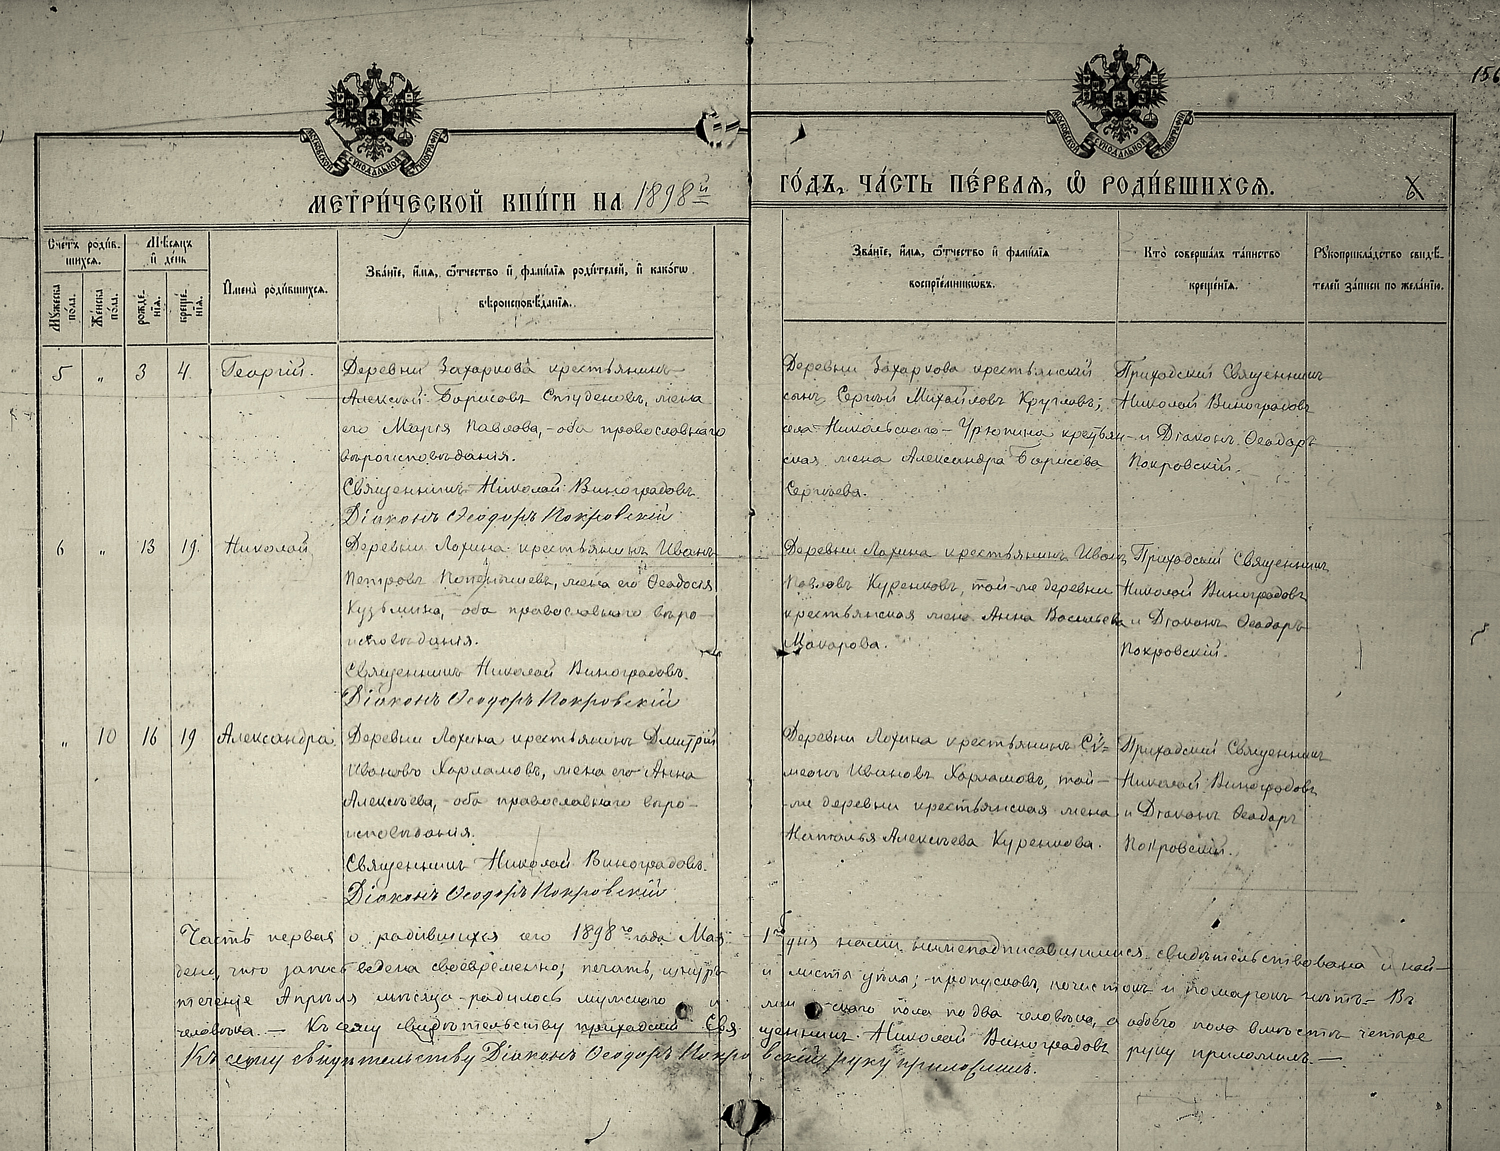 156
МОСКОВСКОЙ СѴНОДАЛЬНОЙ ТИПОГРАФІИ
МОСКОВСКОЙ СѴНОДАЛЬНОЙ ТИПОГРАФІИ
МЕТРИ́ЧЕСКОЙ КНИ́ГИ НА 1898й ГО́ДЪ, ЧА́СТЬ ПЕ́РВАЯ, Ѿ РОДИ́ВШИХСЯ.
Сче́тъ роди́в-
шихся.
Му́жеска по́ла.
Же́нска по́ла.
Мѣсяцъ и день
рожде́-
нія.
креще́-
нія.
Имена̀ роди́вшихся.
Зва́ніе, и́мя, ѻ́тчество и фами́лія роди́телей, и како́гѡ
вѣроисповѣ́данія.
Зва́ніе, и́мя, ѻ́тчество и фами́лія
воспріе́мникѡвъ.
Кто̀ соверша́лъ та́инство
креще́нія.
Рꙋкоприкла́дство свидѣ́-
телей за́писи по жела́нію.
5 „ 3 4. Георгій.
Деревни Захаркова крестьянинъ
Алексѣй Борисовъ Студеновъ, жена
его Марія Павлова, - оба православнаго
вѣроисповѣданія.
Священникъ Николай Виноградовъ.
Діаконъ Ѳеодоръ Покровскій
Деревни Захаркова крестьянскій
сынъ Сергѣй Михайловъ Кругловъ;
села Никольскаго-Урюпина крестьян-
ская жена Александра Борисова
Сергѣева.
Приходскій Священникъ
Николай Виноградовъ
и Діаконъ Ѳеодоръ
Покровскій.
6 „ 13 19. Николай
Деревни Лохина крестьянинъ Иванъ
Петровъ жена его Ѳеодосія
Кузьмина, - оба православнаго вѣро-
исповѣданія.
Священникъ Николай Виноградовъ.
Діаконъ Ѳеодоръ Покровскій
Деревни Лохина крестьянинъ Иванъ
Павловъ Куренковъ, той-же деревни
крестьянская жена Анна Васильева
Макарова.
Приходскій Священникъ
Николай Виноградовъ
и Діаконъ Ѳеодоръ
Покровскій.
„ 10 16 19 Александра.
Деревни Лохина крестьянинъ Дмитрій
Ивановъ Харламовъ, жена его Анна
Алексѣева, - оба православнаго вѣро-
исповѣданія.
Священникъ Николай Виноградовъ.
Діаконъ Ѳеодоръ Покровскій
Деревни Лохина крестьянинъ Сѵ=
меонъ Ивановъ Харламовъ, той-
же деревни крестьянская жена
Наталья Алексѣева Куренкова.
Приходскій Священникъ
Николай Виноградовъ
и Діаконъ Ѳеодоръ
Покровскій.
Часть первая о родившихся сего 1898го года Мая 1го дня нами нижеподписавшимися свидѣтельствована и най-
дено, что запись ведена своевременно; печать, шнуръ и листы цѣлы; пропусковъ, почистокъ и помарокъ нѣтъ. - Въ
теченіе Апрѣля мѣсяца родилось мужского и женскаго пола по два человѣка, а обоего пола вмѣстѣ четыре
человѣка. - Къ сему свидѣтельству приходскій Священникъ Николай Виноградовъ руку приложилъ. -
Къ сему свидѣтельству Діаконъ Ѳеодоръ Покровскій руку приложилъ.